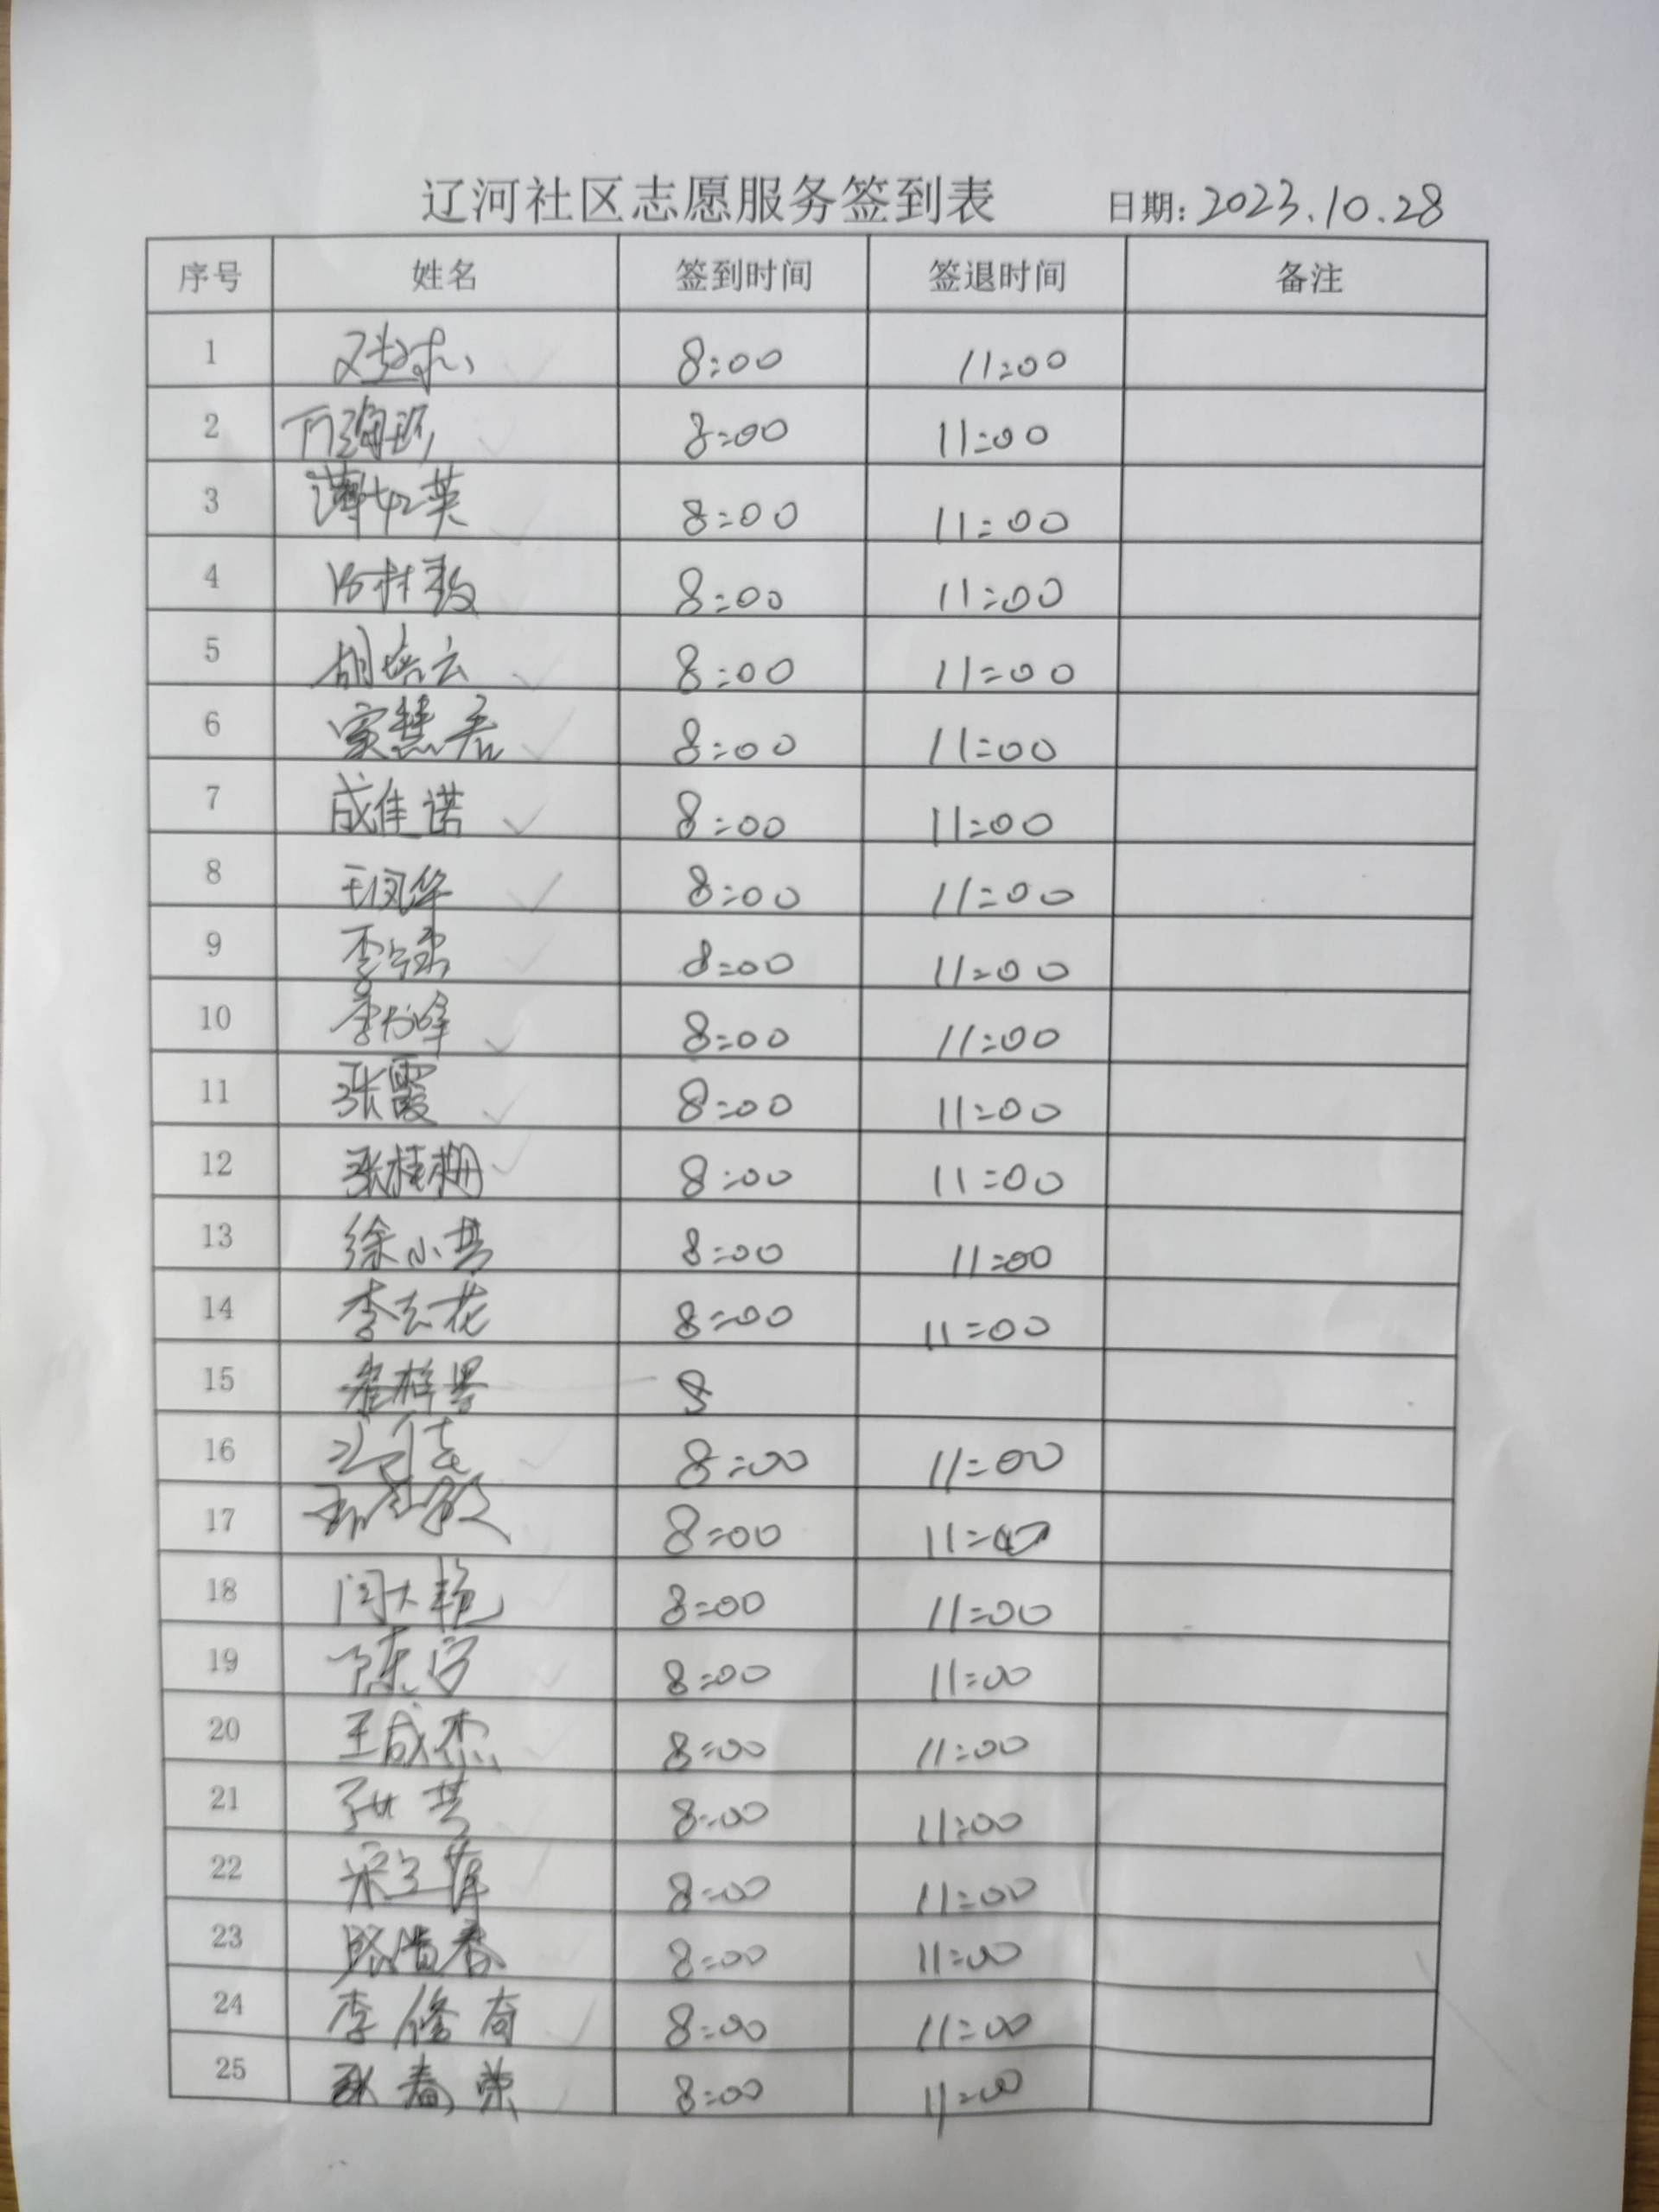 辽河社区志愿服务签到表 日期：2023.10.28
序号 姓名 签到时间 签退时间 备注
1 8:00 11:00
2 8:00 11:00
3 薄如英 8:00 11:00
4 8:00 11:00
5 胡培云 8:00 11:00
6 窦慧君 8:00 11:00
7 成佳诺 8:00 11:00
8 王凤华 8:00 11:00
9 8:00 11:00
10 8:00 11:00
11 张霞 8:00 11:00
12 张桂栅 8:00 11:00
13 徐小芸 8:00 11:00
14 李云花 8:00 11:00
15 8
16 8:00 11:00
17 8:00 11:00
18 闫大艳 8:00 11:00
19 陈 8:00 11:00
20 王成杰 8:00 11:00
21 8:00 11:00
22 8:00 11:00
23 路尚春 8:00 11:00
24 李修奇 8:00 11:00
25 张春荣 8:00 11:00